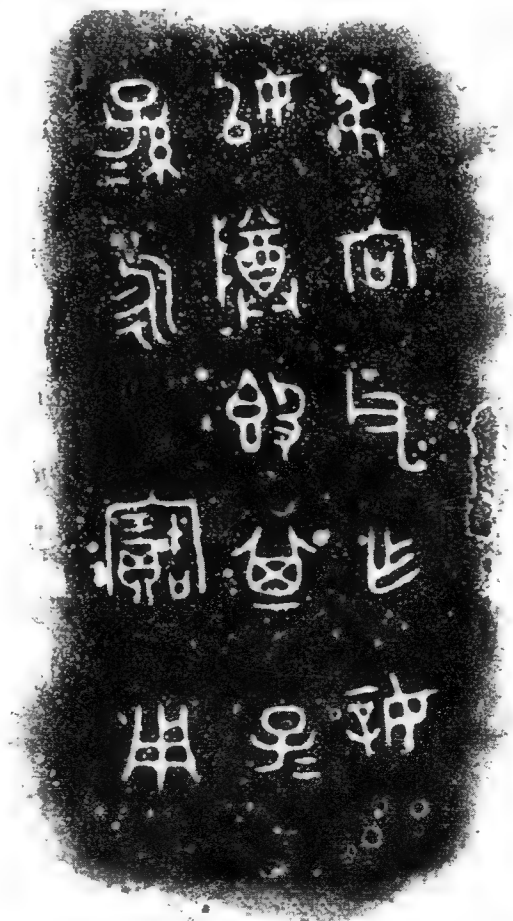 弔向父乍婞
姒𨺅𣪘其子=
孫=永寶用